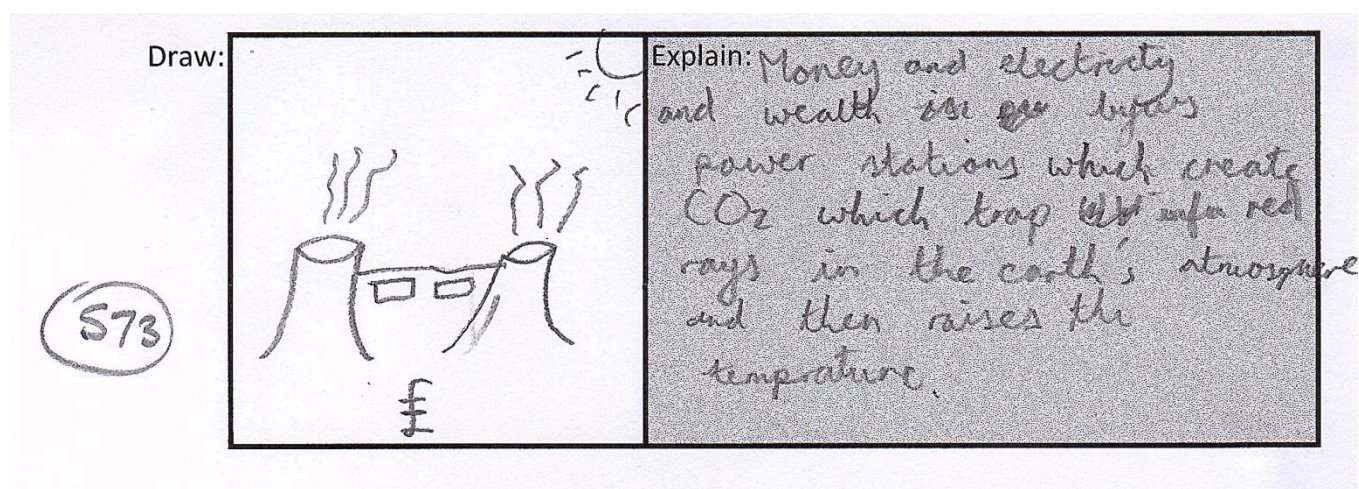 Draw:
Explain: Money and electricity
and wealth is by
power stations which create
CO2 which trap infa red
rays in the earth's atmosphere
and then raises the
temprature.
S73
£